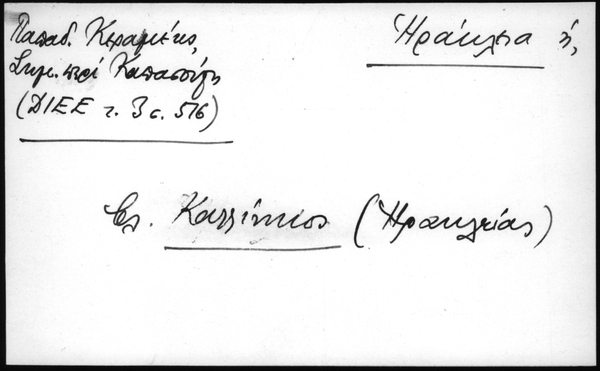 Παπαδ. Κεραμεύς,
Σημ. περί Καπασίζη
(ΔΙΕΕ τ. 3 σ. 516)
Ἡράκλεια ἡ,
βλ. Καλλίνικος (Ἡρακλείας)